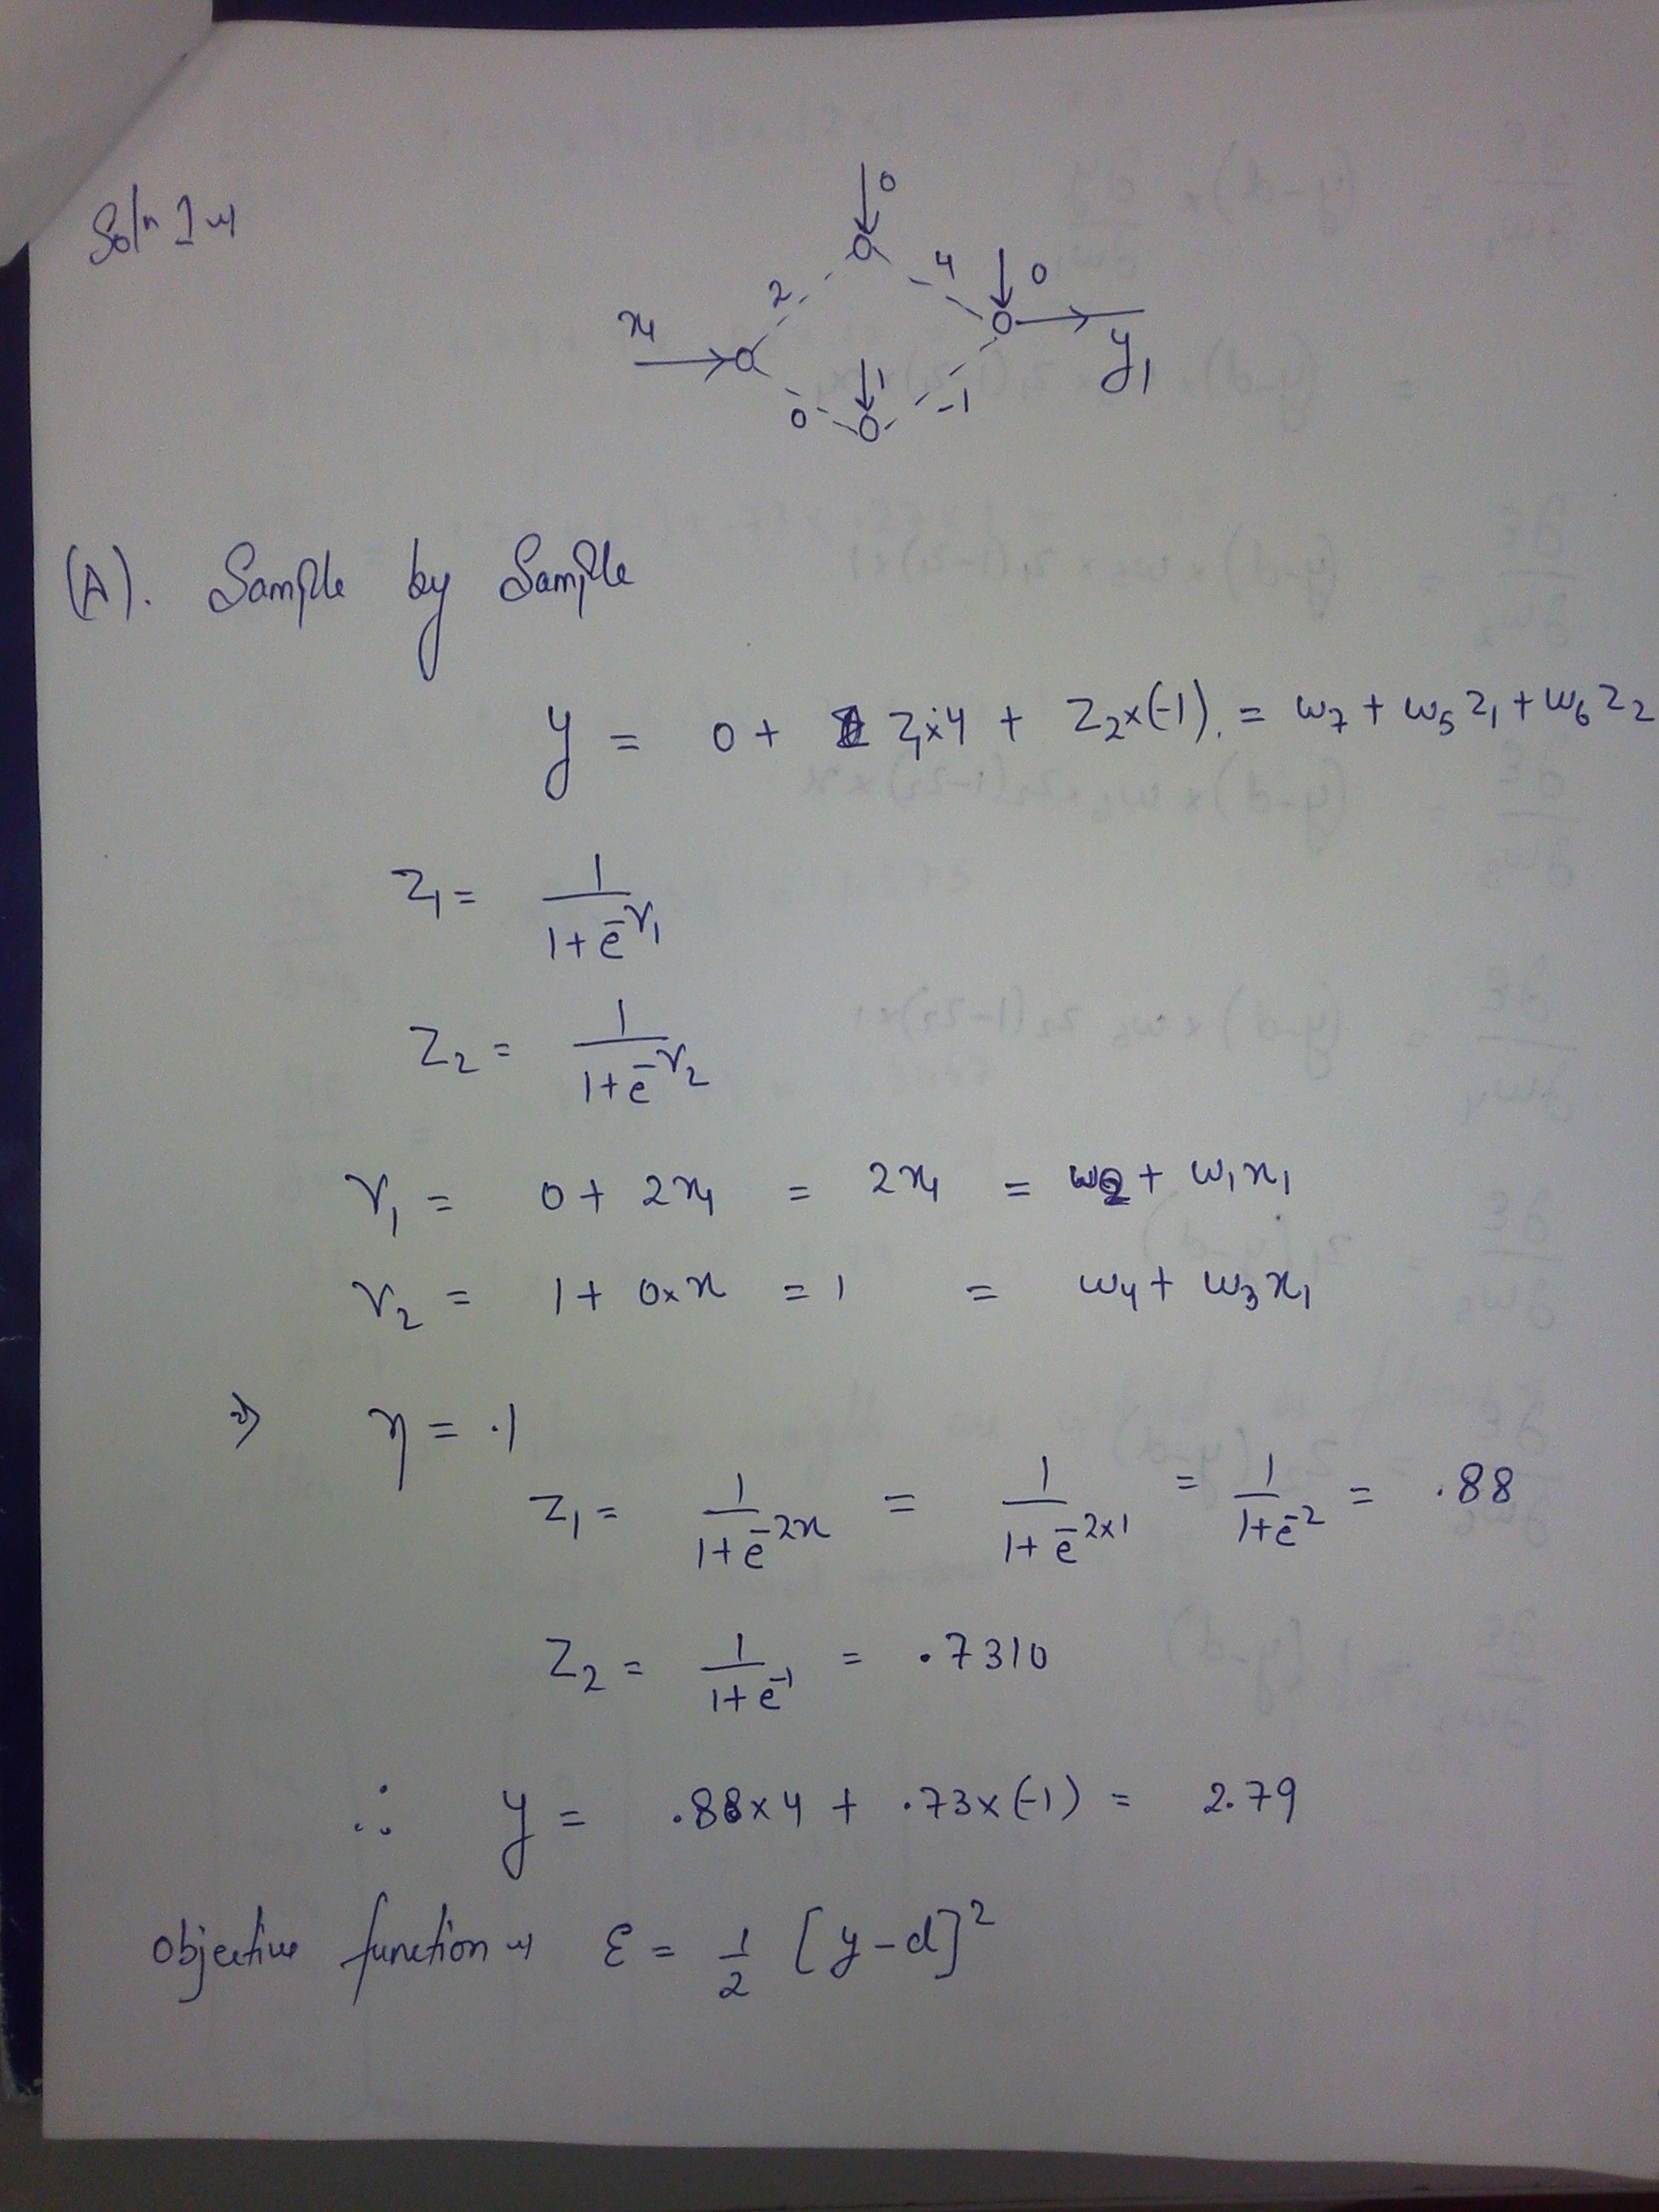 Soln 1 →
0
4
0
2
x1
y1
1
0
-1
(A). Sample by Sample
y = 0 + z1×4 + z2×(-1). = w7 + w5 z1 + w6 z2
z1 = 1/(1+e^-γ1)
z2 = 1/(1+e^-γ2)
γ1 = 0 + 2x1 = 2x1 = w2 + w1x1
γ2 = 1 + 0×x = 1 = w4 + w3x1
⇒ η = .1
z1 = 1/(1+e^-2x) = 1/(1+e^-2×1) = 1/(1+e^-2) = .88
z2 = 1/(1+e^-1) = .7310
∴ y = .88×4 + .73×(-1) = 2.79
Objective function → ε = 1/2 [y-d]^2